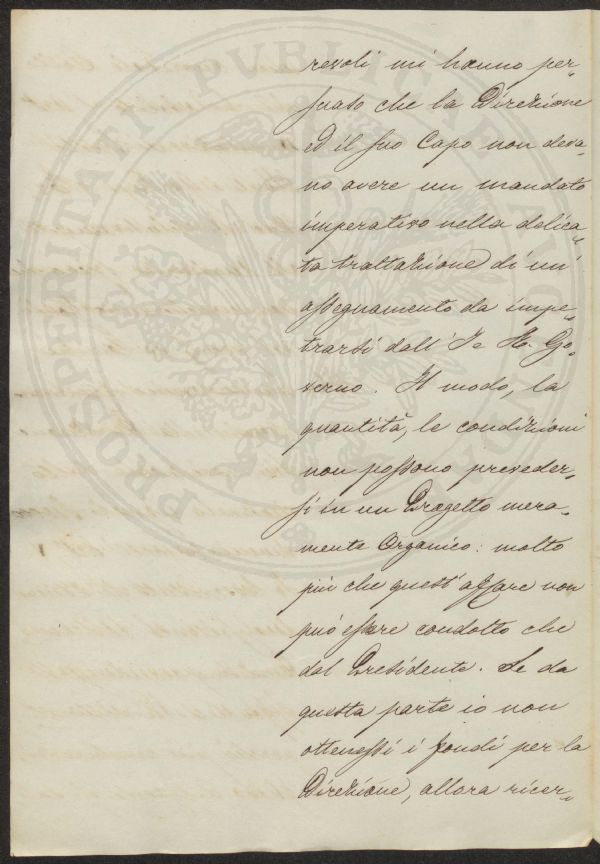 PROSPERITATI PVBLICAE AVGENDAE
revoli mi hanno per-
suaso che la Direzione
ed il suo Capo non deva-
no avere un mandato
imperativo nella delica-
ta trattazione di un'
assegnamento da impe-
trarsi dall' I. e R. Go-
verno. Il modo, la
quantità, le condizioni
non possono preveder-
si in un Progetto mera-
mente Organico: molto
più che quest' affare non
può essere condotto che
dal Presidente. Se da
questa parte io non
ottenessi i fondi per la
Direzione, allora ricer-